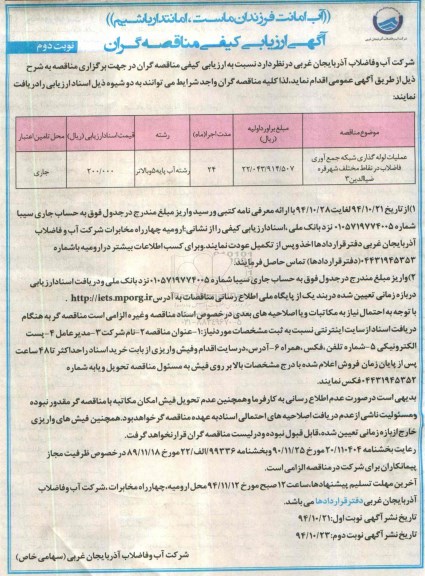 ((آب امانت فرزندان ماست، امانتدار باشیم))
آگهی ارزیابی کیفی مناقصه گران
نوبت دوم
شرکت آب و فاضلاب آذربایجان غربی در نظر دارد نسبت به ارزیابی کیفی مناقصه گران در جهت برگزاری مناقصه به شرح
ذیل از طریق آگهی عمومی اقدام نماید، لذا کلیه مناقصه گران واجد شرایط می توانند به دو شیوه ذیل اسناد ارزیابی را دریافت
نمایند:
موضوع مناقصه | مبلغ برآورد اولیه (ریال) | مدت اجرا (ماه) | رشته | قیمت اسناد ارزیابی (ریال) | محل تامین اعتبار
عملیات لوله گذاری شبکه جمع آوری فاضلاب در نقاط مختلف شهر قره ضیاالدین ۳ | ۲۳/۰۴۳/۹۱۴/۵۰۷ | ۲۴ | رشته آب پایه ۵ و بالاتر | ۲۰۰/۰۰۰ | جاری
۱) از تاریخ ۹۴/۱۰/۲۱ لغایت ۹۴/۱۰/۲۸ با ارائه معرفی نامه کتبی و رسید واریز مبلغ مندرج در جدول فوق به حساب جاری سیبا
شماره ۰۱۰۵۷۱۹۷۷۴۰۰۵ نزد بانک ملی، اسناد ارزیابی کیفی را از نشانی: ارومیه چهارراه مخابرات شرکت آب و فاضلاب
آذربایجان غربی دفتر قراردادها اخذ و پس از تکمیل عودت نمایند. و برای کسب اطلاعات بیشتر در ارومیه با شماره
۰۴۴۳۱۹۴۵۳۵۳ (دفتر قراردادها) تماس حاصل فرمایند.
۲) واریز مبلغ مندرج در جدول فوق به حساب جاری سیبا شماره ۰۱۰۵۷۱۹۷۷۴۰۰۵ نزد بانک ملی و دریافت اسناد ارزیابی
در بازه زمانی تعیین شده در بند یک از پایگاه ملی اطلاع رسانی مناقصات به آدرس http://iets.mporg.ir .
با توجه به احتمال نیاز به مکاتبات و یا اصلاحیه های بعدی در خصوص اسناد مناقصه و غیره الزامی است مناقصه گر به هنگام
دریافت اسناد از سایت اینترنتی نسبت به ثبت مشخصات مورد نیاز: ۱-عنوان مناقصه ۲-نام شرکت ۳-مدیر عامل ۴-پست
الکترونیکی ۵-شماره تلفن، فکس، همراه ۶-آدرس، در سایت اقدام و فیش واریزی از بابت خرید اسناد را حداکثر تا ۴۸ ساعت
پس از پایان زمان فروش اعلام شده با درج مشخصات بالا بر روی فیش به مسئول مناقصه تحویل و یا به شماره
۰۴۴۳۱۹۴۵۳۵۲ فکس نمایند.
بدیهی است در صورت عدم اطلاع رسانی به کارفرما و همچنین عدم تحویل فیش امکان مکاتبه با مناقصه گر مقدور نبوده
و مسئولیت ناشی از عدم دریافت اصلاحیه های احتمالی اسناد به عهده مناقصه گر خواهد بود. همچنین فیش های واریزی
خارج از بازه زمانی تعیین شده، قابل قبول نبوده و در لیست مناقصه گران قرار نخواهد گرفت.
رعایت بخشنامه ۲۰/۱۱۰۴۰۴ مورخ ۹۰/۱۱/۲۵ و بخشنامه ۹۹۳۳۶/الف/۲۲ مورخ ۸۹/۱۱/۱۸ در خصوص ظرفیت مجاز
پیمانکاران برای شرکت در مناقصه الزامی است.
آخرین مهلت تسلیم پیشنهادها، ساعت ۱۲ صبح مورخ ۹۴/۱۱/۱۲ محل ارومیه، چهارراه مخابرات، شرکت آب و فاضلاب
آذربایجان غربی دفتر قراردادها می باشد.
تاریخ نشر آگهی نوبت اول: ۹۴/۱۰/۲۱
تاریخ نشر آگهی نوبت دوم: ۹۴/۱۰/۲۳
شرکت آب و فاضلاب آذربایجان غربی (سهامی خاص)